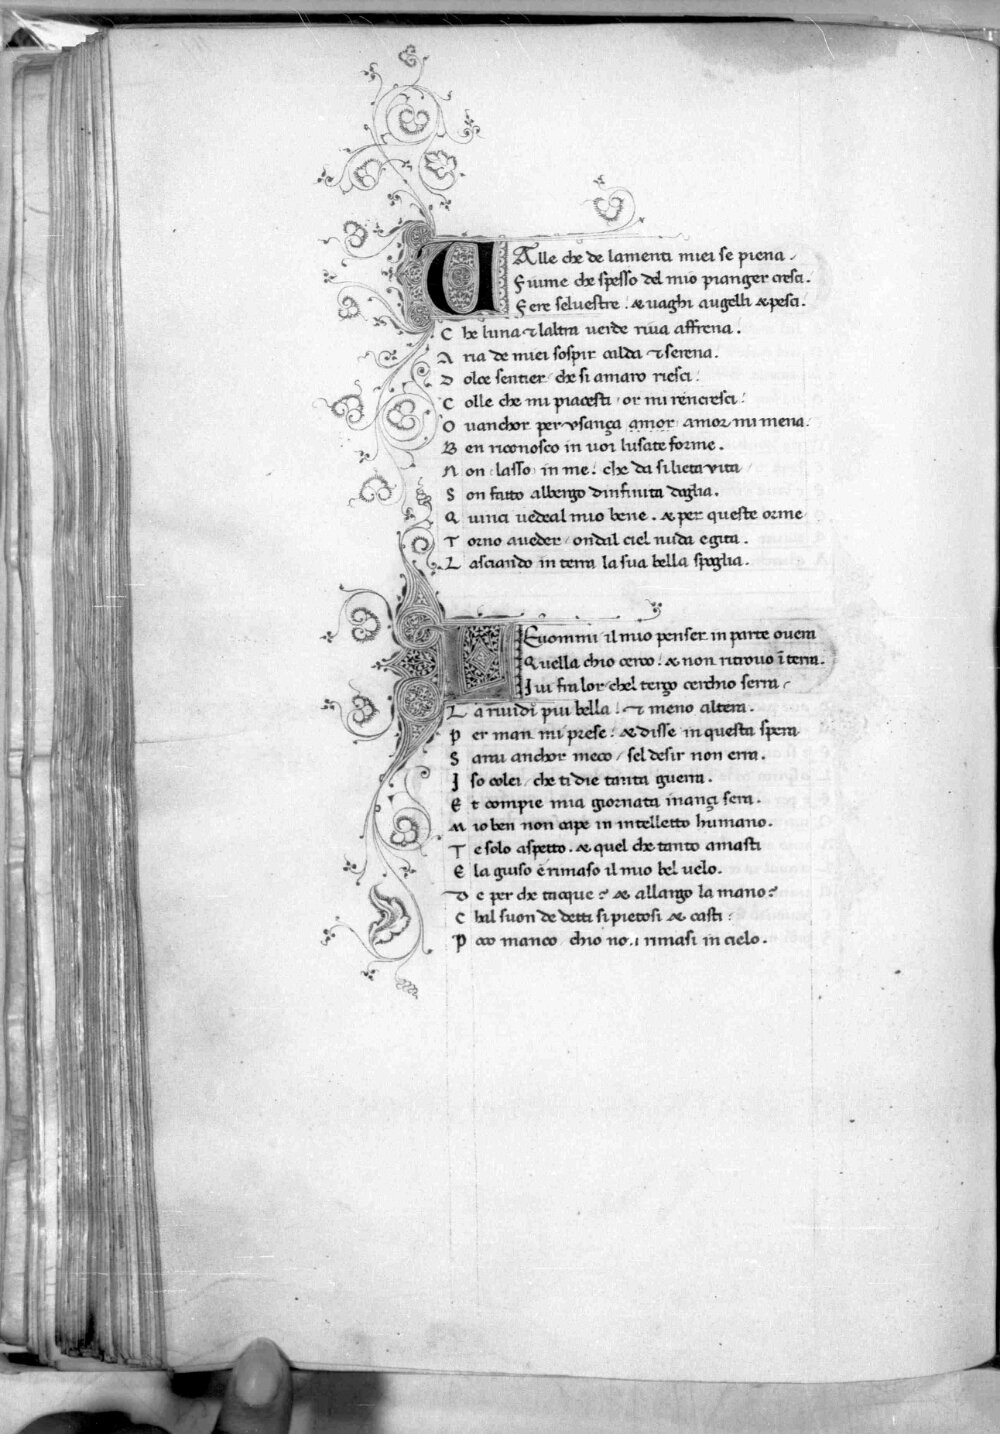 VAlle che de lamenti miei se piena /
Fiume che spesso del mio pianger cresci.
Fere seluestre : & uaghi augelli & pesci.
C he luna & laltra uerde riua affrena.
A ria de miei sospir calda & serena.
D olce sentier / che si amaro riesci:
C olle che mi piacesti / or mi rencresci:
O uanchor per vsança amor / amor mi mena.
B en riconosco in uoi lusate forme.
N on / lasso / in me. che da si lieta vita
S on fatto albergo dinfinita doglia.
Q uinci uedeal mio bene. & per queste orme
T orno aueder / ondal ciel nuda e gita.
L asciando in terra la sua bella spoglia.
LEuommi il mio penser in parte ouera
Quella chio cerco : & non ritrouo ī terra.
Jui fra lor / chel terço cerchio serra /
L a riuidi piu bella : & meno altera.
P er man mi prese : & disse in questa spera
S arai anchor meco / sel desir non erra.
J so colei / che ti die tanta guerra.
E t compie mia giornata inançi sera.
M io ben non cape in intelletto humano.
T e solo aspetto. & quel che tanto amasti
E la guiso è rimaso il mio bel uelo.
D e per che tacque? & allargo la mano?
C hal suon de detti si pietosi & casti:
P oco manco chio no.i rimasi in cielo.